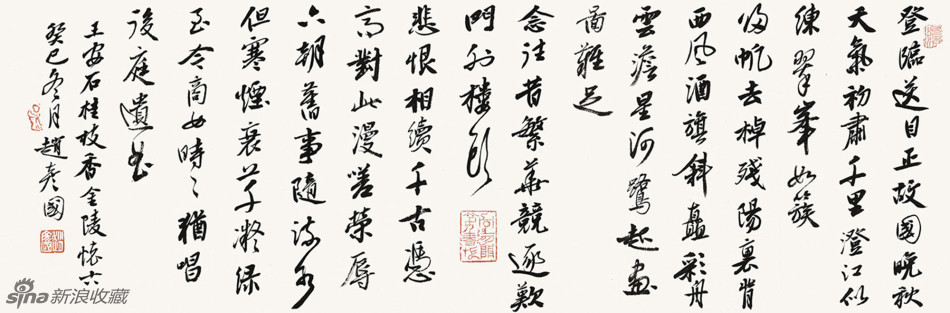 登臨送目正故國晚秋
天氣初肅千里澄江似
練翠峯如簇
歸帆去棹殘陽裏背
西風酒旗斜矗彩舟
雲澹星河鷺起畫
圖難足
念往昔繁華競逐歎
門外樓頭
悲恨相續千古憑
高對此漫嗟榮辱
六朝舊事隨流水
但寒煙衰草凝綠
至今商女時々猶唱
後庭遺曲
王安石桂枝香金陵懷古
癸巳冬月趙彥國
sina新浪收藏